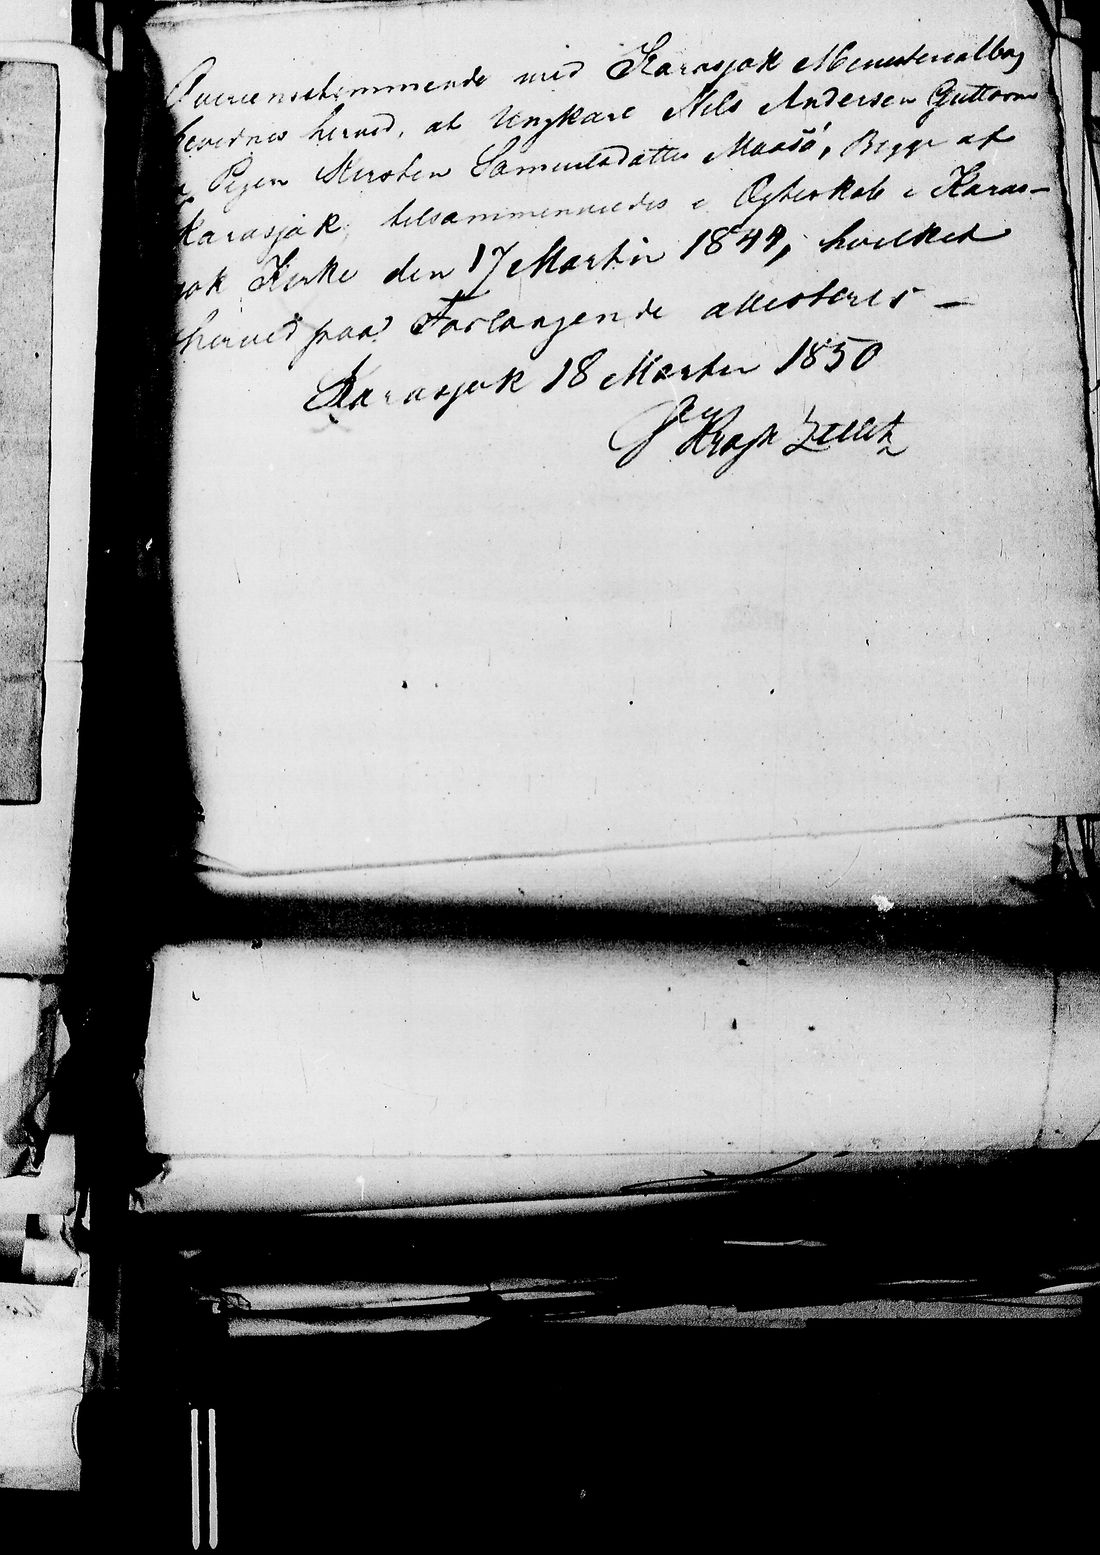 Overensstemmende med Karasjok Ministerialbog
bevidnes herved, at Ungkarl Nils Andersen Guttorm
og Pigen Kirsten Samuelsdatter Maasø, Begge af
Karasjok, ere sammenviede i Ægteskab i Karas-
jok Kirke den 17 Martii 1844, hvilket
herved paa Forlangende attesteres –
Karasjok 18 Martii 1850
Krogh Zetlitz